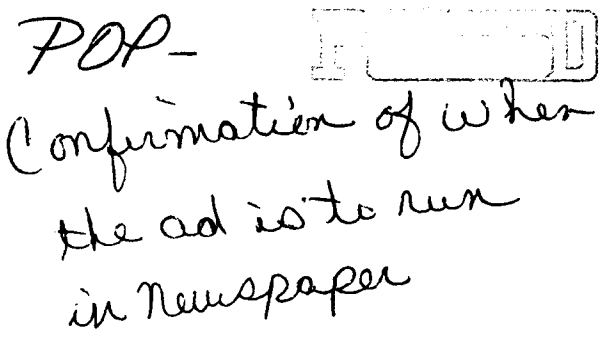 POP-
Confirmation of when
the ad is to run
in Newspaper